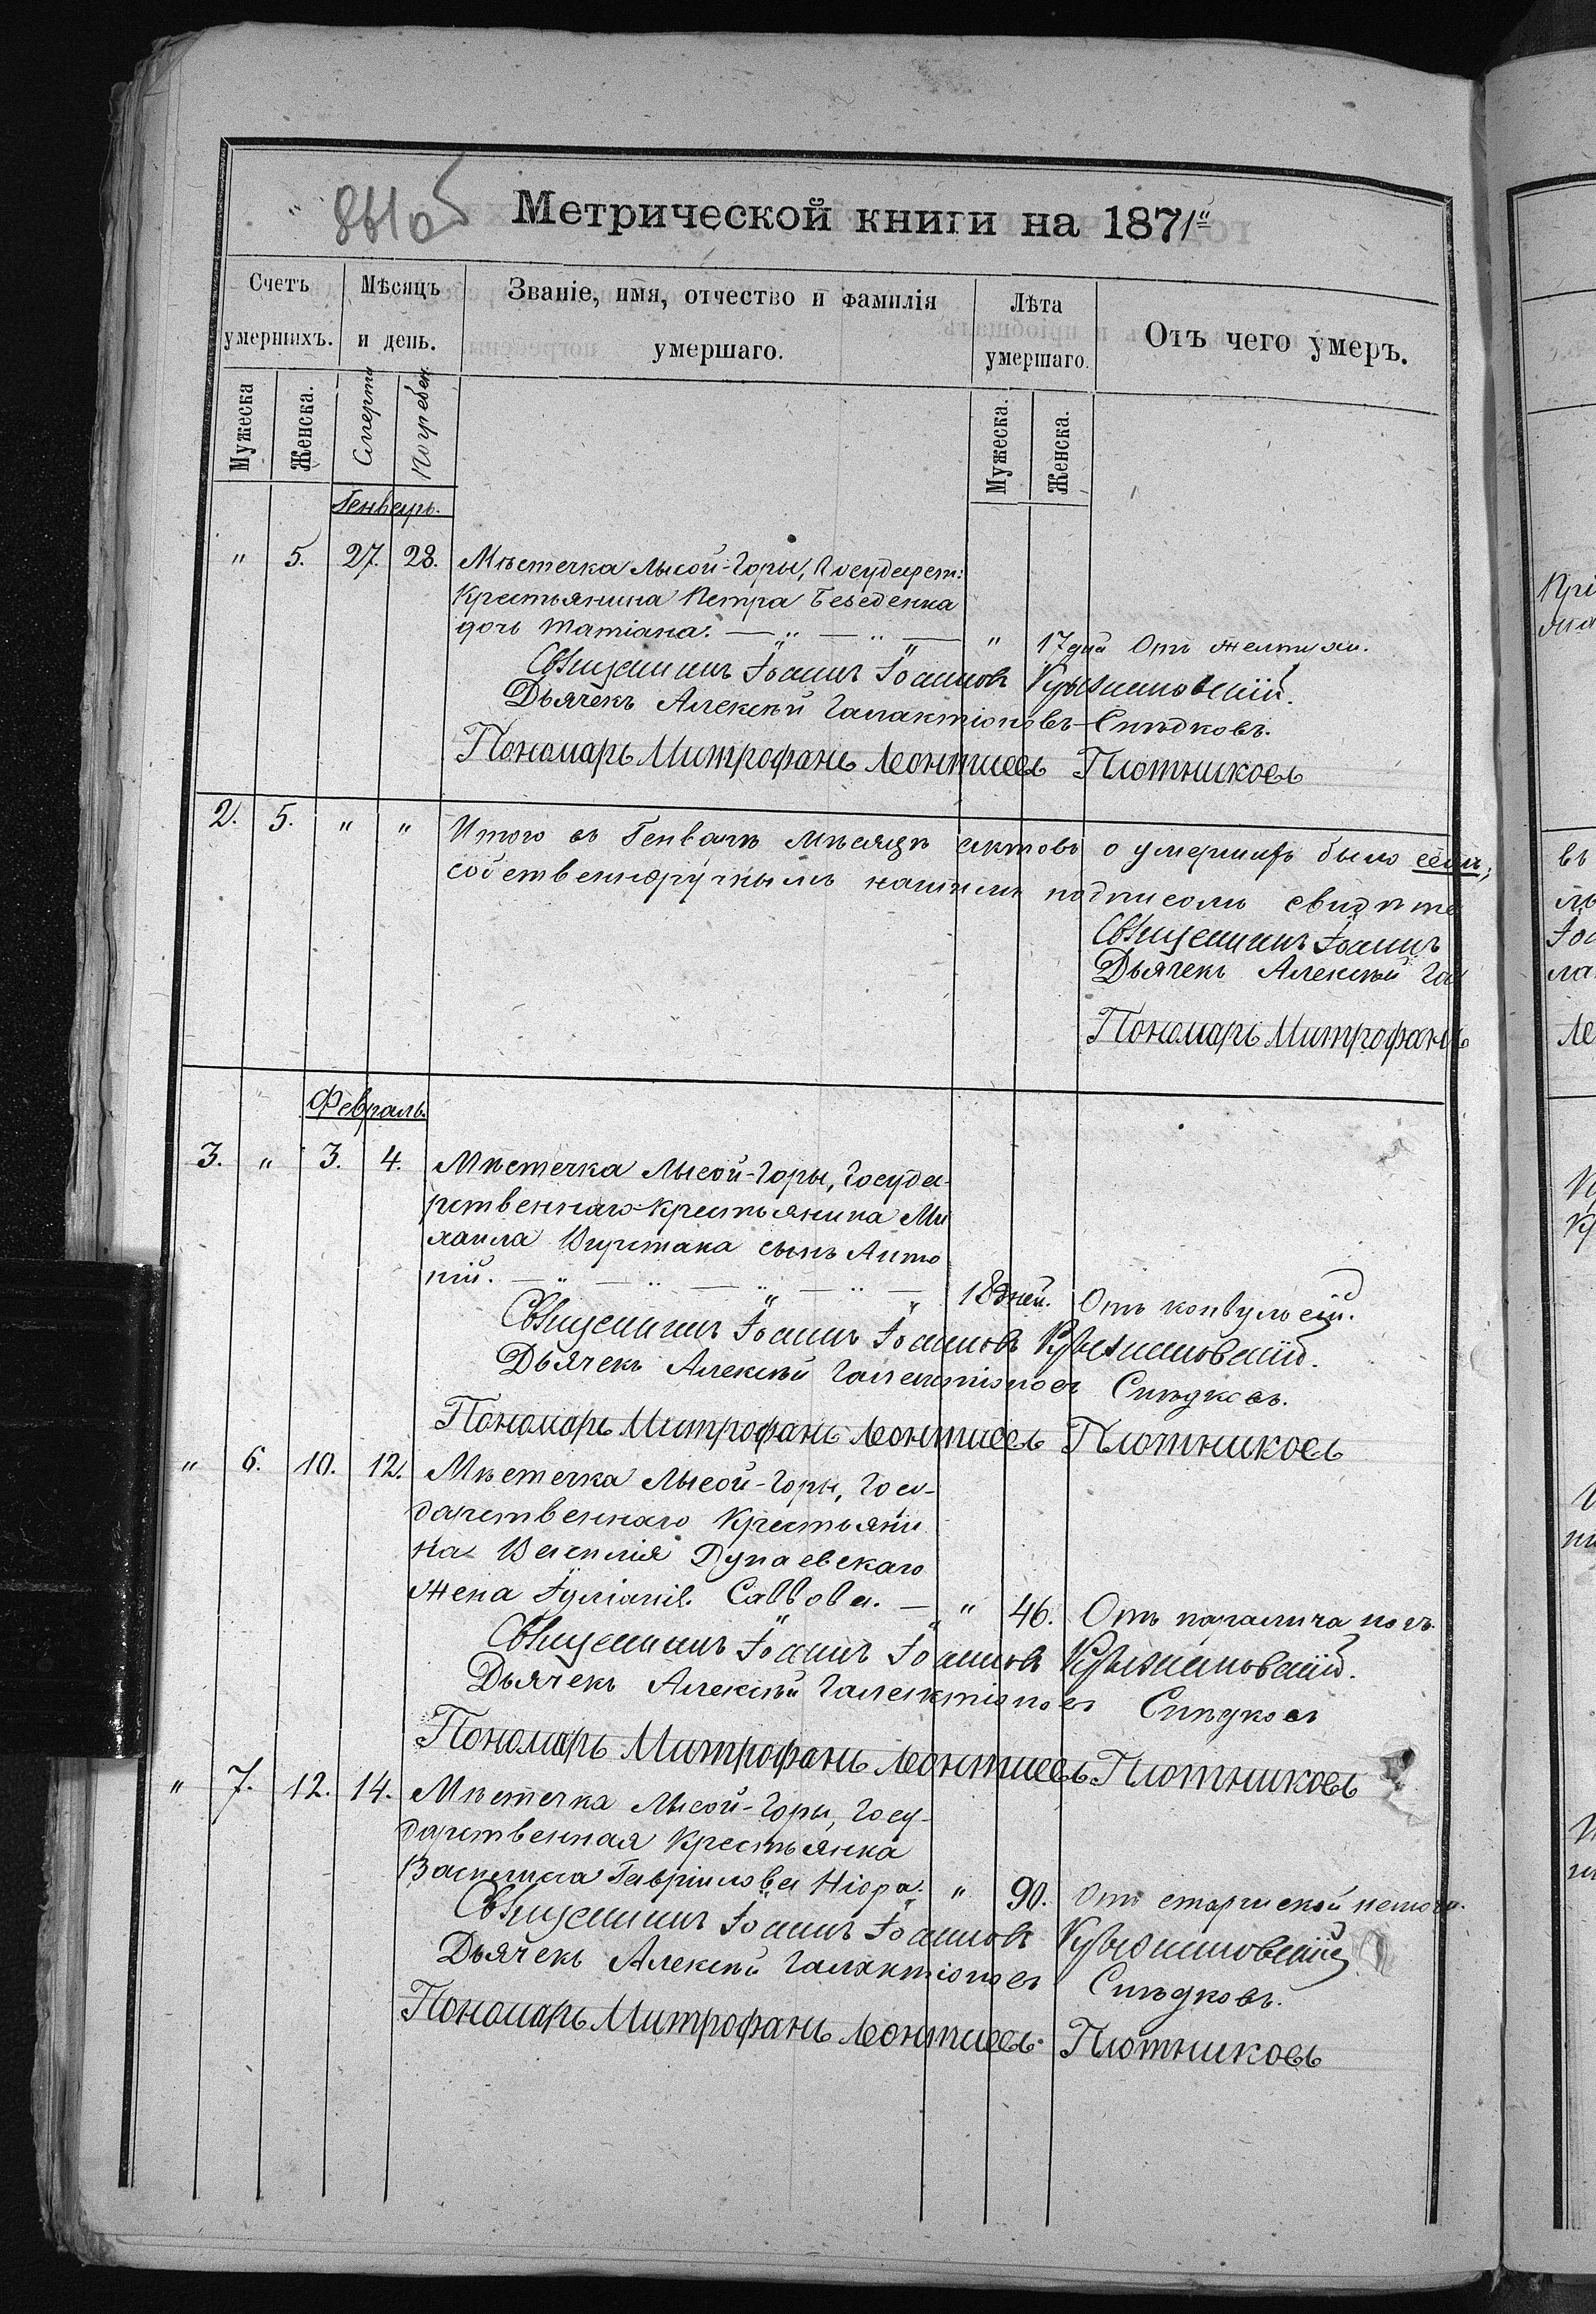 861об
Метрической книги на 1871й
Счетъ умершихъ. Мѣсяцъ и день. Званіе, имя, отчество и фамилія умершаго. Лѣта умершаго. Отъ чего умеръ.
Мужеска Женска. Смерти Погребен. Мужеска. Женска.
Генварь.
" 5. 27. 28. Мѣстечка Лысой-Горы, Государст:
Крестьянина Петра Безеденка
дочь Татіана. " 17 дни Отъ желтухи.
Священникъ Іоаннъ Іоанновъ Крыжановскій.
Дьячекъ Алексѣй Галактіоновъ Слѣдковъ.
Пономарь Митрофанъ Леонтиевъ Плотниковъ
2. 5. " " Итого въ Генварѣ мѣсяцѣ актовъ о умершихъ было семь;
собственноручнымъ нашимъ подписомъ свидѣте
Священникъ Іоаннъ
Дьячекъ Алексѣй Га
Пономарь Митрофанъ
Февраль.
3. " 3. 4. Мѣстечка Лысой-Горы, Госуда-
рственнаго Крестьянина Ми
хаила сынъ Анто
ній. 18 дней. Отъ конвульсій.
Священникъ Іоаннъ Іоанновъ Крыжановскій.
Дьячекъ Алексѣй Галактіоновъ Слѣдковъ.
Пономарь Митрофанъ Леонтиевъ Плотниковъ
" 6. 10. 12. Мѣстечка Лысой-Горы, Госу-
дарственнаго Крестьяни
на Василія Дунаевскаго
жена Іуліанія Саввова. " 46. Отъ паралича ногъ.
Священникъ Іоаннъ Іоанновъ Крыжановскій.
Дьячекъ Алексѣй Галактіоновъ Слѣдковъ
Пономарь Митрофанъ Леонтиевъ Плотниковъ
" 7. 12. 14. Мѣстечка Лысой-Горы, Госу-
дарственная Крестьянка
Василиса Гавріилова Нюра. " 90. Отъ старческой немощи.
Священникъ Іоаннъ Іоанновъ Крыжановскій
Дьячекъ Алексѣй Галактіоновъ Слѣдковъ.
Пономарь Митрофанъ Леонтиевъ Плотниковъ